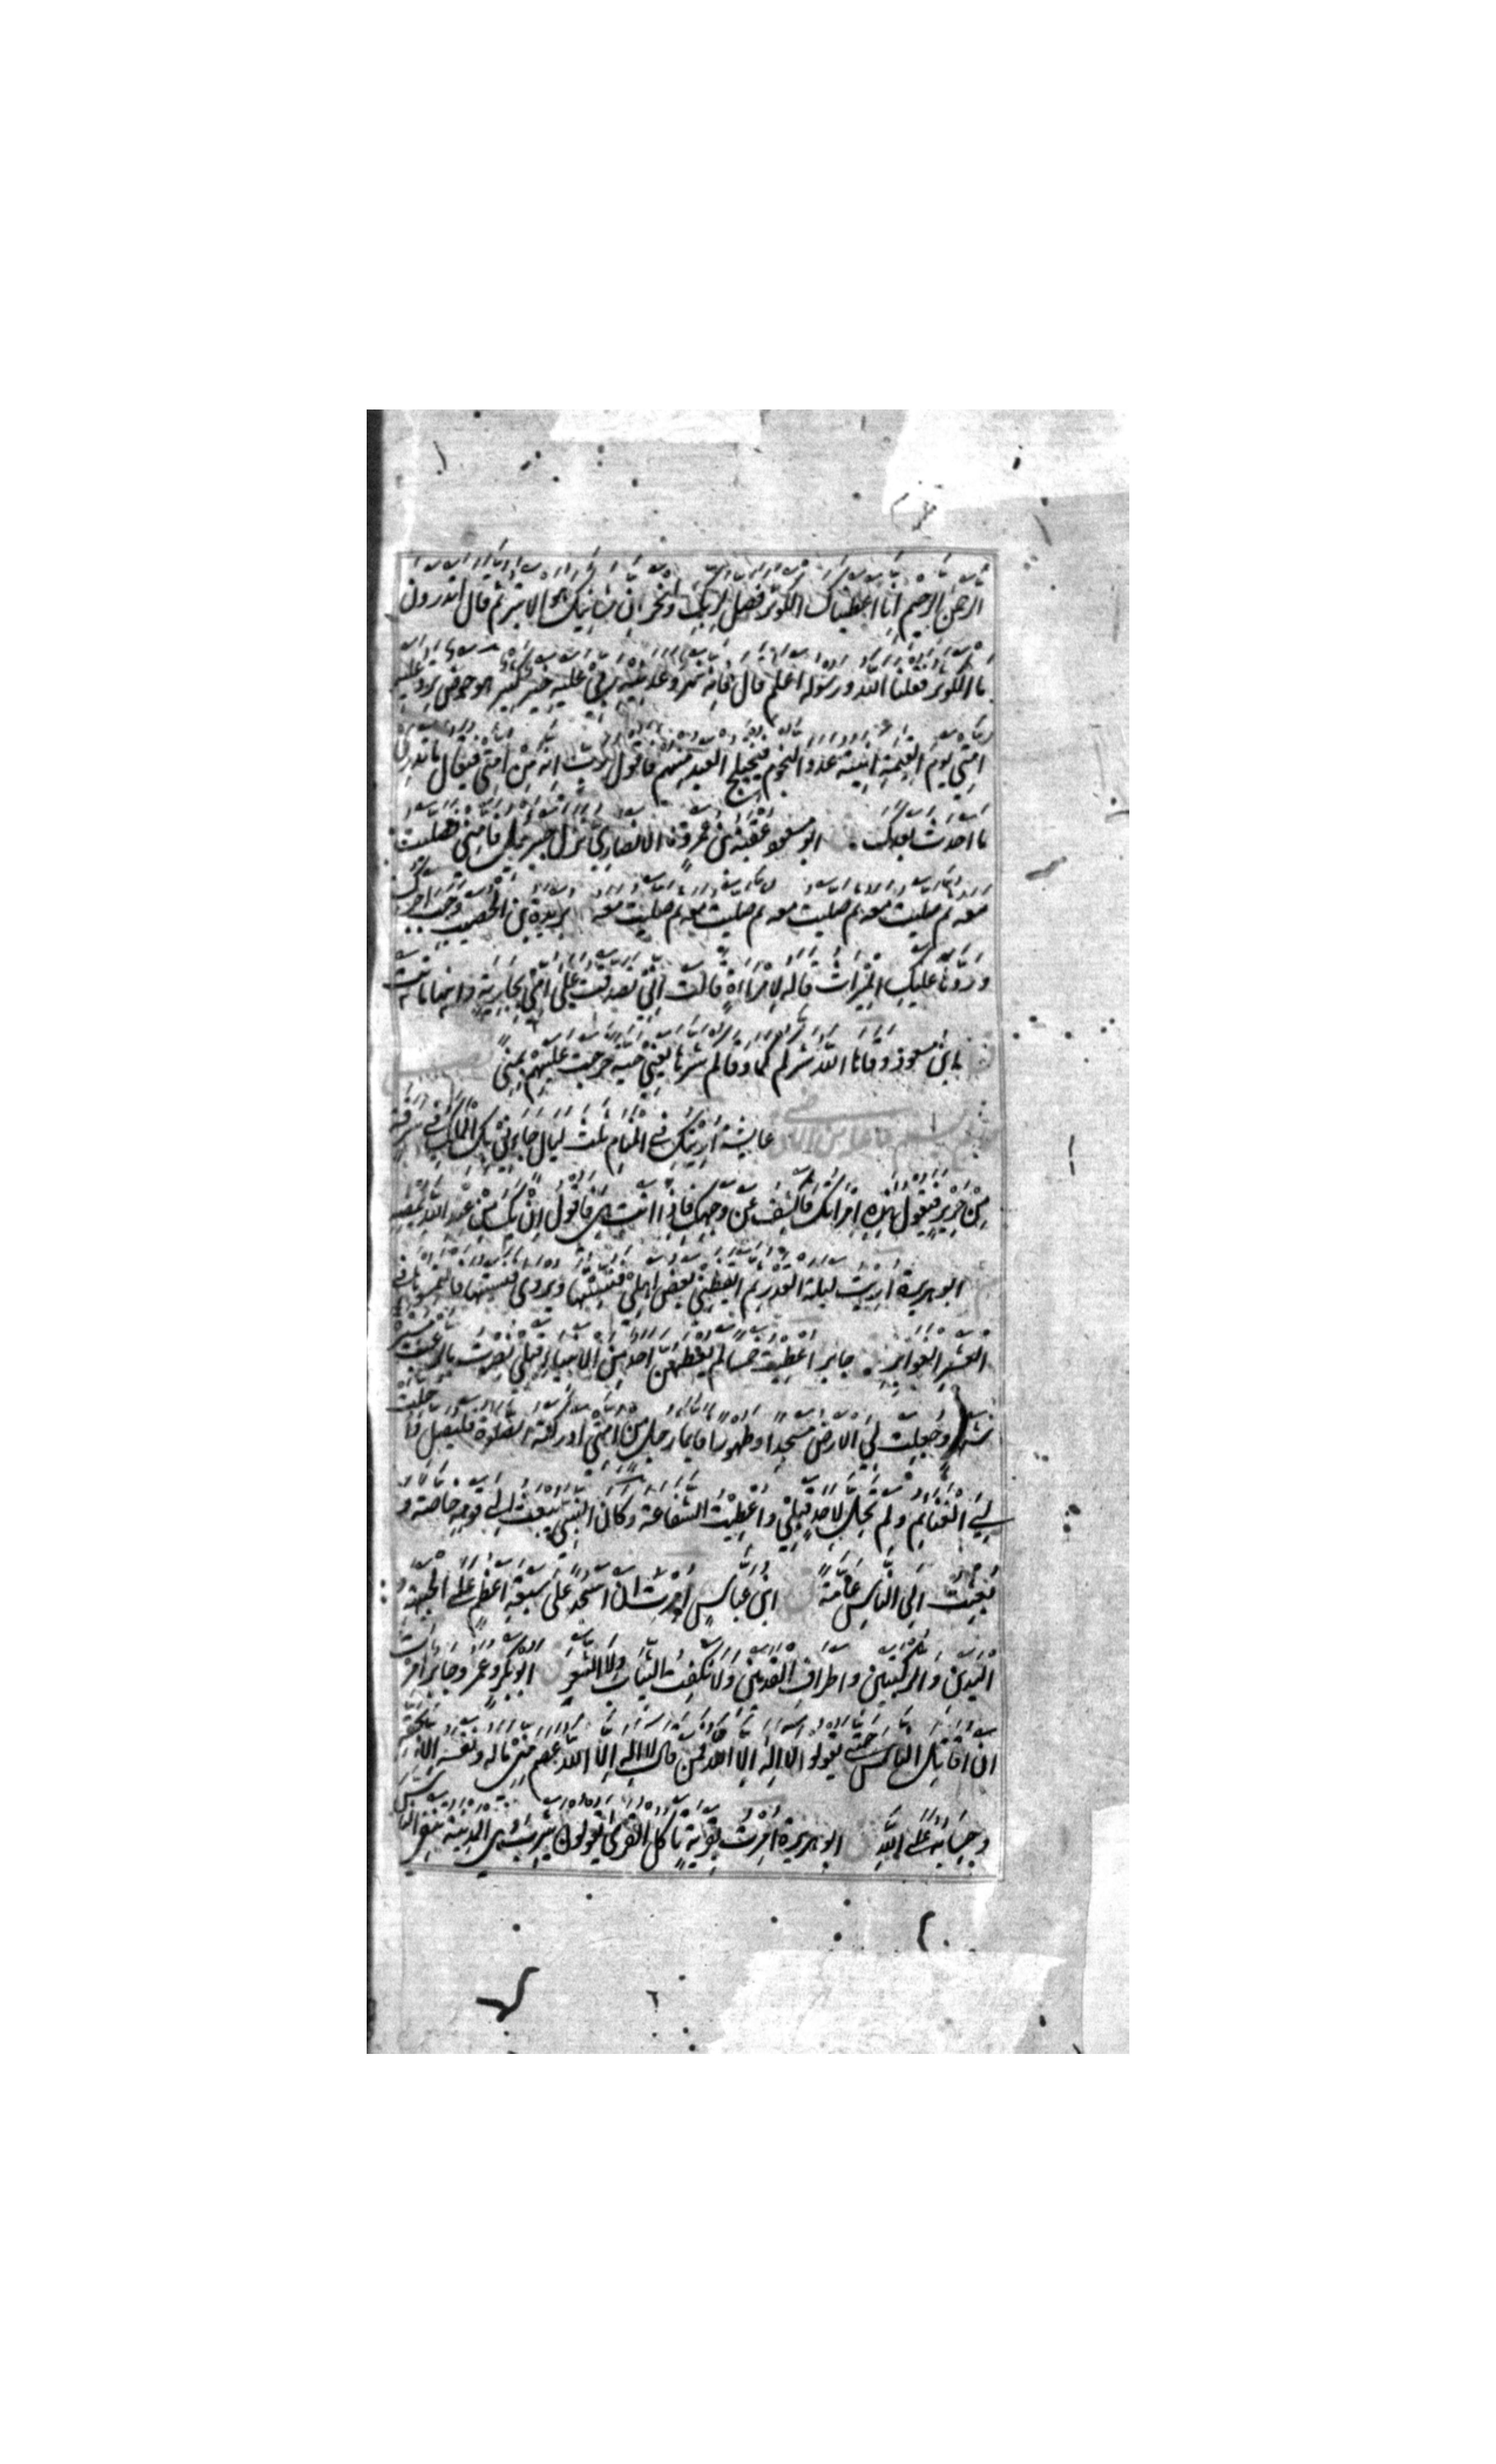 الرحمن الرحيم انا اعطيناك الكوثر فصل لربك وانحر ان شانئك هو الابتر ثم قال اتدرون
ما الكوثر فقلنا الله ورسوله اعلم قال فانه نهر وعدنيه ربي عليه خير كثير هو حوضي ترد عليه
امتي يوم القيمة انيته عدد النجوم فيختلج العبد منهم فاقول رب انه من امتي فيقال ما تدري
ما احدث بعدك ابو مسعود عقبة بن عمرو الانصاري نزل جبريل فامني فصليت
معه ثم صليت معه ثم صليت معه ثم صليت معه ثم صليت معه بريدة بن الحصيب وجب اجرك
وردها عليك الميراث قاله لامراة قالت اني تصدقت على امي بجارية وانها ماتت
ابن مسعود وقاها الله شركم كما وقاكم شرها يعني حية خرجت عليهم بمنى
عايشة اريتك في المنام ثلث ليال جاءني بك الملك في سرقة
من حرير فيقول هذه امراتك فاكشف عن وجهك فاذا انت هي فاقول ان يك من عند الله يمضه
ابو هريرة اريت ليلة القدر ثم ايقظني بعض اهلي فنسيتها ويروى فنسيتها فالتمسوها في
العشر الغوابر جابر اعطيت خمسا لم يعطهن احد من الانبياء قبلي نصرت بالرعب مسيرة
شهر وجعلت لي الارض مسجدا وطهورا فايما رجل من امتي ادركته الصلوة فليصل واحلت
لي الغنايم ولم تحل لاحد قبلي واعطيت الشفاعة وكان النبي يبعث الى قومه خاصة و
بعثت الى الناس عامة ابن عباس امرت ان اسجد على سبعة اعظم على الجبهة و
اليدين والركبتين واطراف القدمين ولا نكفت الثياب ولا الشعر ابو بكر وعمر وجابر امرت
ان اقاتل الناس حتى يقولوا لا اله الا الله فمن قال لا اله الا الله عصم مني ماله ونفسه الا بحقه
وحسابه على الله ابو هريرة امرت بقرية تاكل القرى يقولون يثرب وهي المدينة تنفي الناس